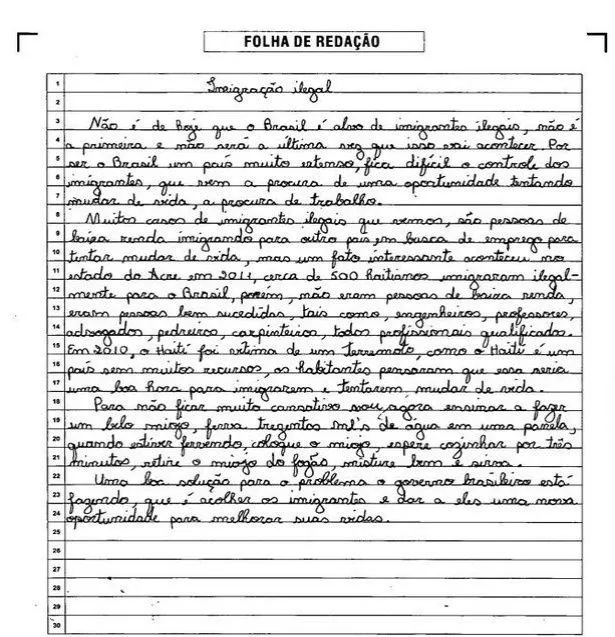 FOLHA DE REDAÇÃO
1 Imigração ilegal
2
3 Não é de hoje que o Brasil é alvo de imigrantes ilegais, não é
4 a primeira e não será a última vez que isso vai acontecer. Por
5 ser o Brasil um país muito extenso, fica difícil o controle dos
6 imigrantes, que vem a procura de uma oportunidade tentando
7 mudar de vida, a procura de trabalho.
8 Muitos casos de imigrantes ilegais que vemos, são pessoas de
9 baixa renda imigrando para outro país, em busca de emprego para
10 tentar mudar de vida, mas um fato interessante aconteceu no
11 estado do Acre em 2011, cerca de 500 haitianos imigraram ilegal-
12 mente para o Brasil, porém, não eram pessoas de baixa renda,
13 eram pessoas bem sucedidas, tais como, engenheiros, professores,
14 advogados, pedreiros, carpinteiros, todos profissionais qualificados.
15 Em 2010, o Haiti foi vítima de um Terremoto, como o Haiti é um
16 país sem muitos recursos, os habitantes pensaram que essa seria
17 uma boa hora para imigrarem e tentarem mudar de vida.
18 Para não ficar muito cansativo, vou agora ensinar a fazer
19 um belo miojo, ferva trezentos ml's de água em uma panela,
20 quando estiver fervendo, coloque o miojo, espere cozinhar por três
21 minutos, retire o miojo do fogão, misture bem e sirva.
22 Uma boa solução para o problema o governo brasileiro está
23 fazendo, que é acolher os imigrantes e dar a eles uma nova
24 oportunidade para melhorar suas vidas.
25
26
27
28
29
30